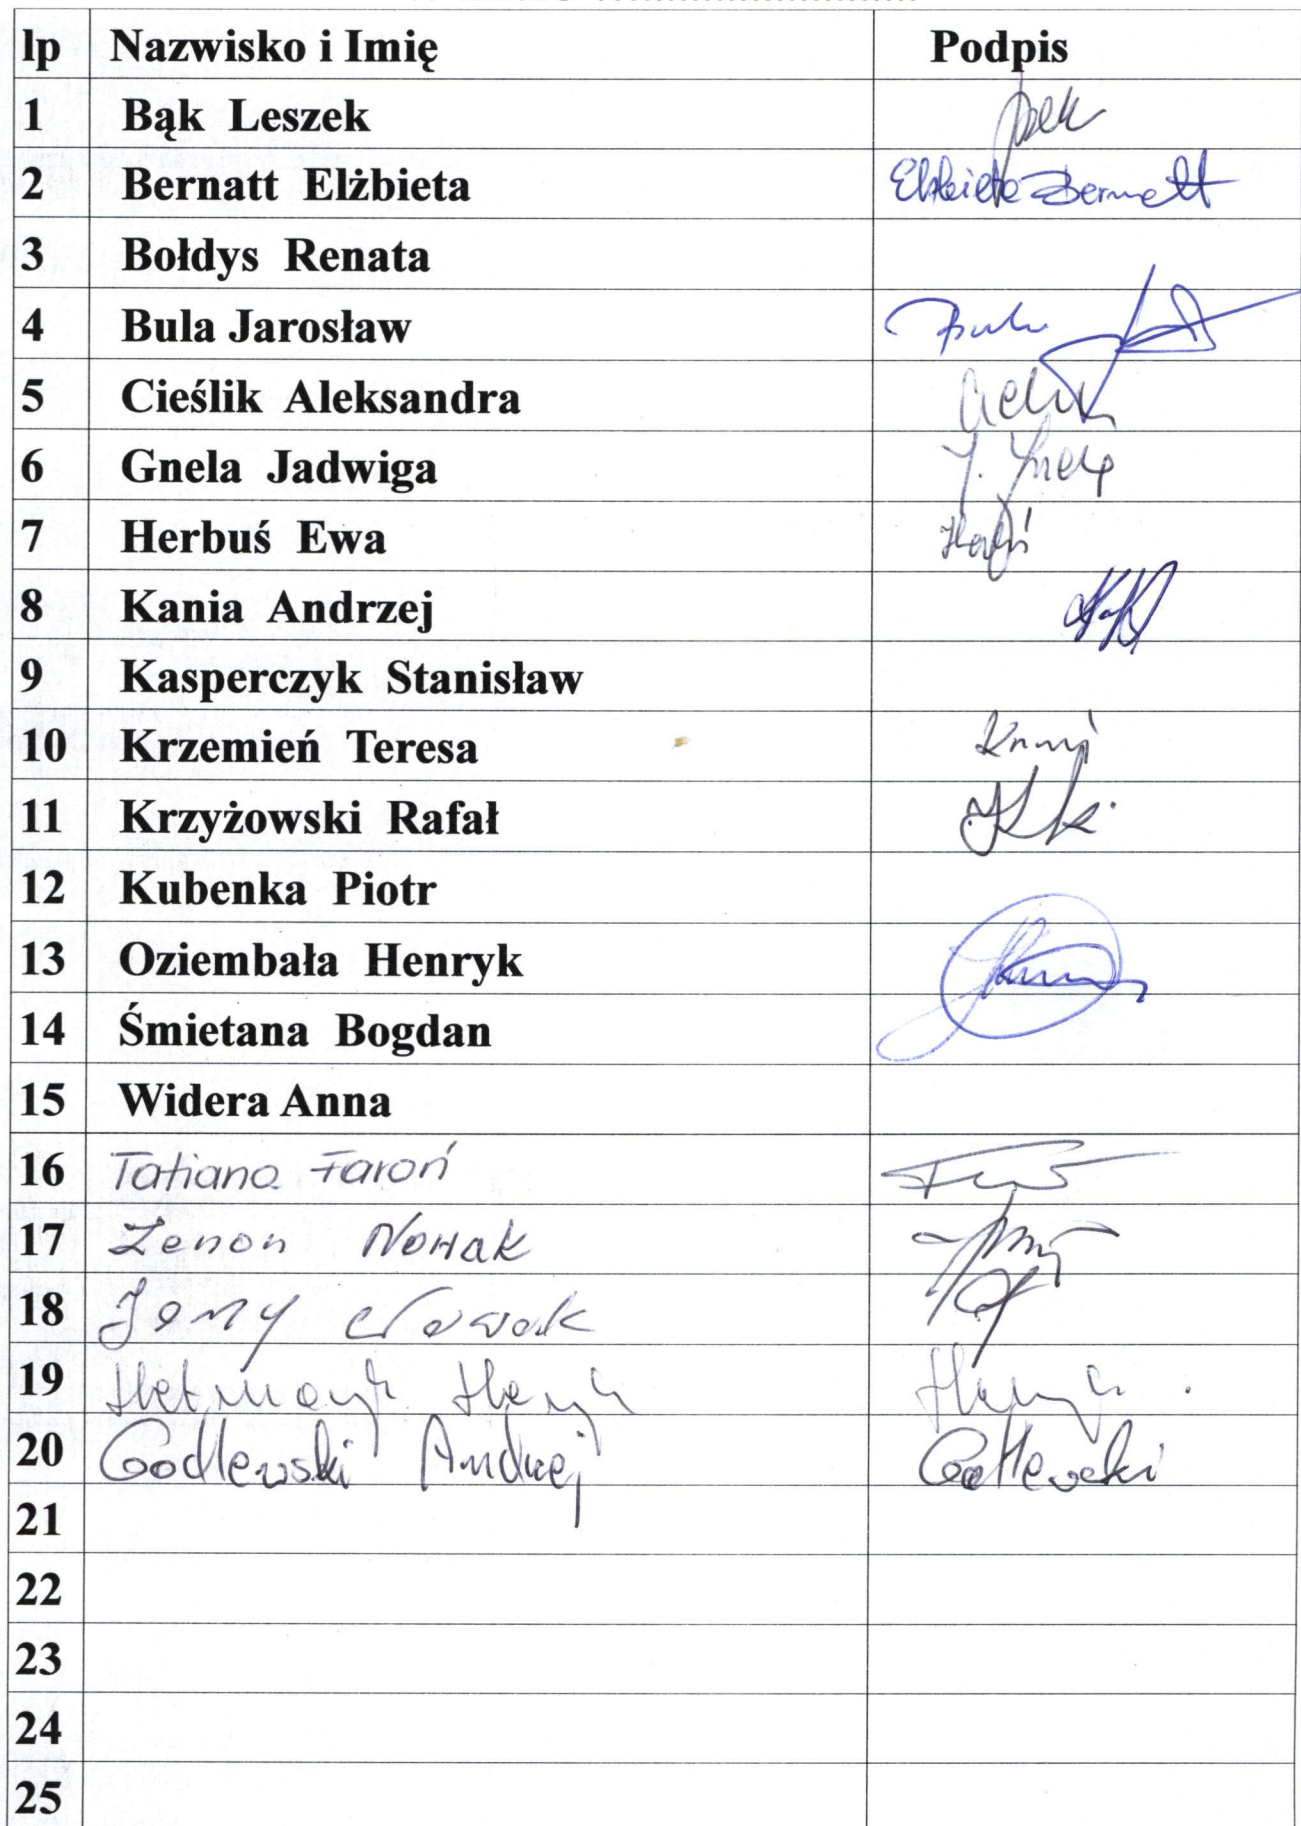 lp Nazwisko i Imię Podpis
1 Bąk Leszek
2 Bernatt Elżbieta Elżbieta Bernatt
3 Bołdys Renata
4 Bula Jarosław
5 Cieślik Aleksandra
6 Gnela Jadwiga J. Gnela
7 Herbuś Ewa
8 Kania Andrzej
9 Kasperczyk Stanisław
10 Krzemień Teresa
11 Krzyżowski Rafał
12 Kubenka Piotr
13 Oziembała Henryk
14 Śmietana Bogdan
15 Widera Anna
16 Tatiana Faroń
17 Zenon Nowak
18 Jerzy Nowak
19
20 Godlewski Andrzej Godlewski
21
22
23
24
25